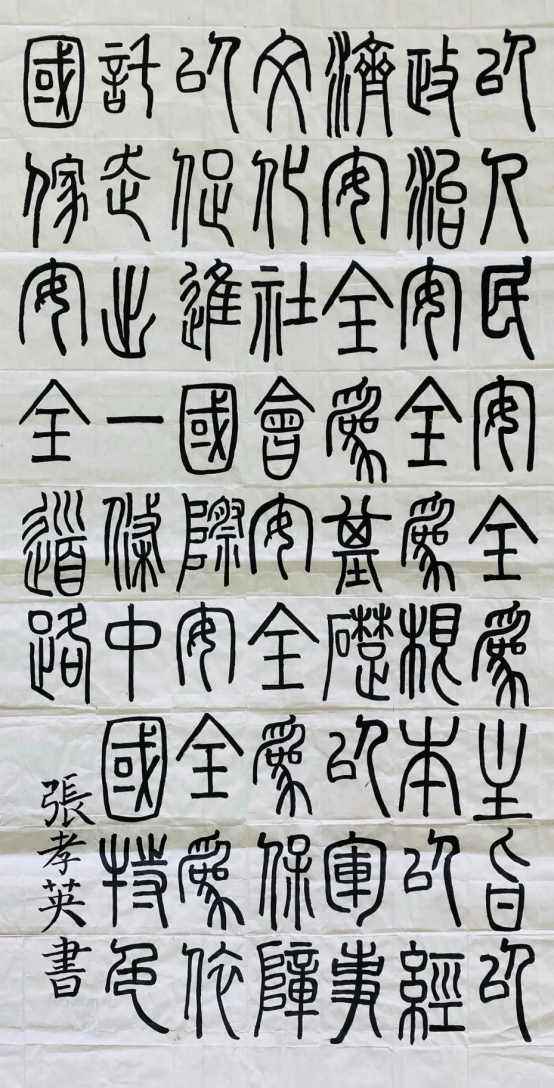 以人民安全為主旨以
政治安全為根本以經
濟安全為基礎以軍事
文化社會安全為保障
以促進國際安全為依
託走出一條中國特色
國傢安全道路
張孝英書